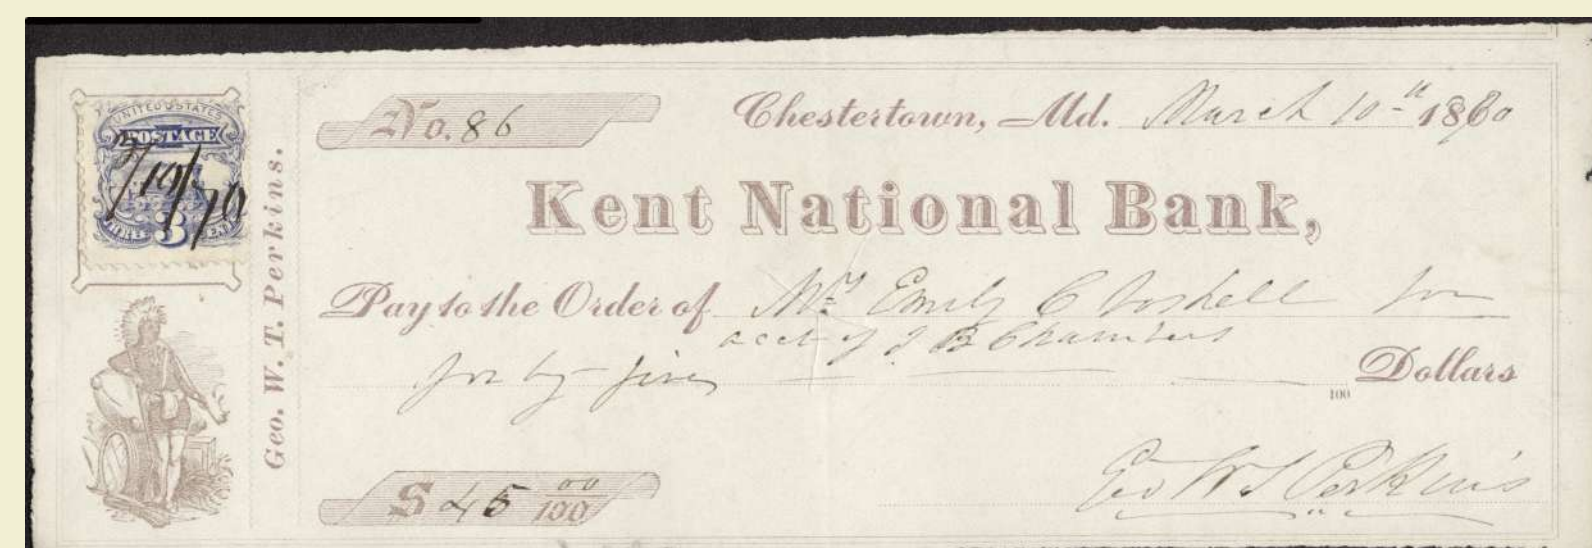 UNITED STATES
POSTAGE
3/10/70
THREE 3 CENTS
Geo. W. T. Perkins.
No. 86
Chestertown, Md. March 10th 1870
Kent National Bank,
Pay to the Order of Mrs Emily C Toshell for
acct of J B Chambers
forty five Dollars
100
$ 45 00/100
Geo W T Perkins